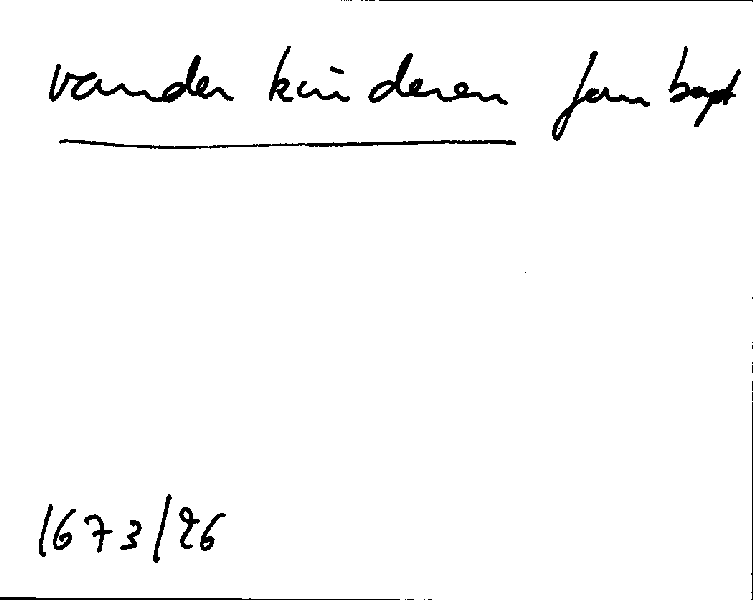 vander kinderen Jan bapt
1673/26